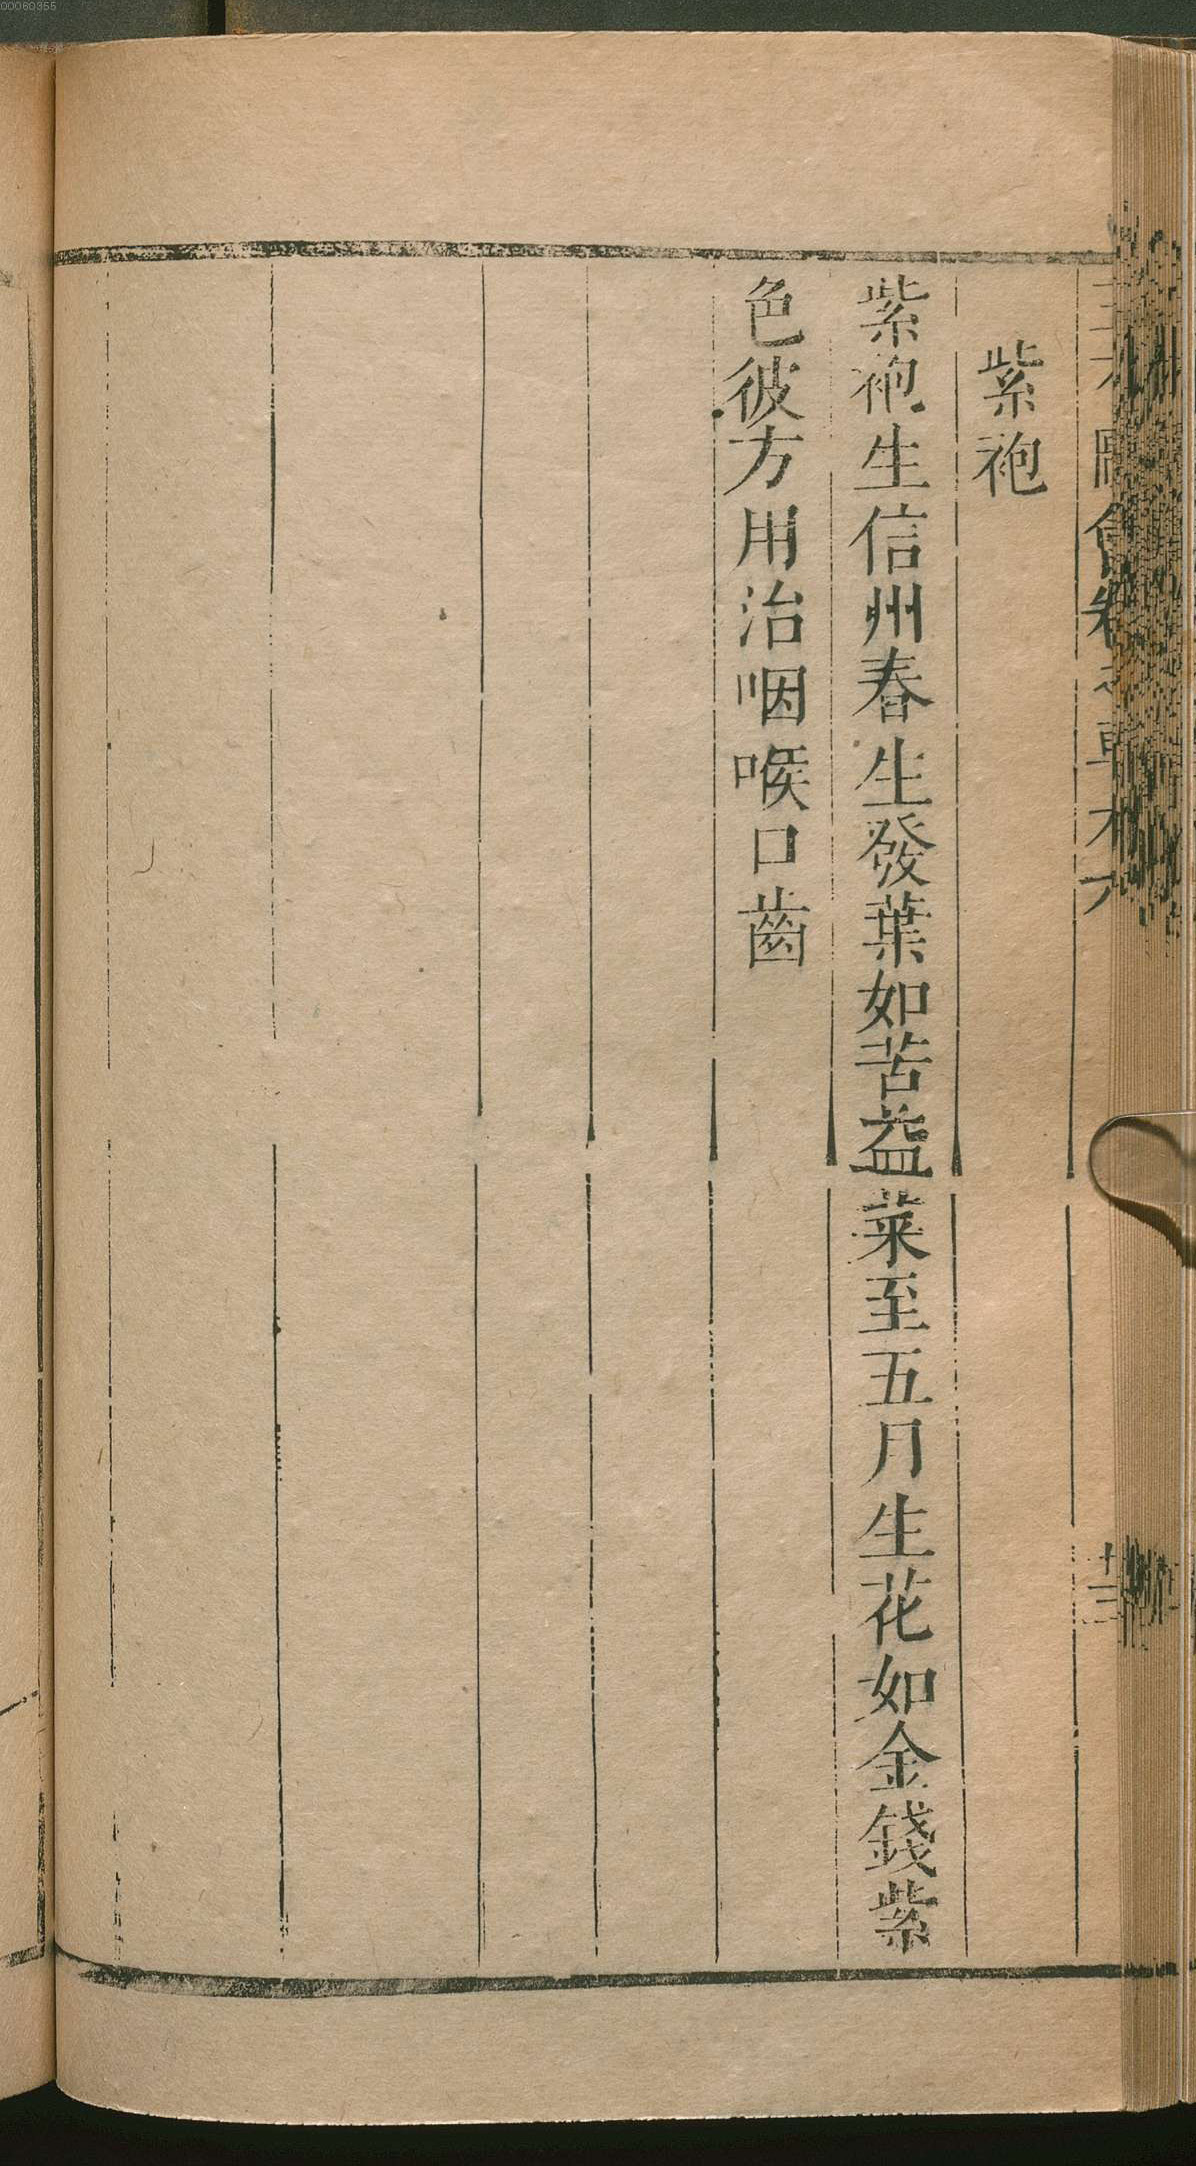 00060355
會卷之草木六
廿三
紫袍
紫袍生信州春生發葉如苦益菜至五月生花如金錢紫
色彼方用治咽喉口齒